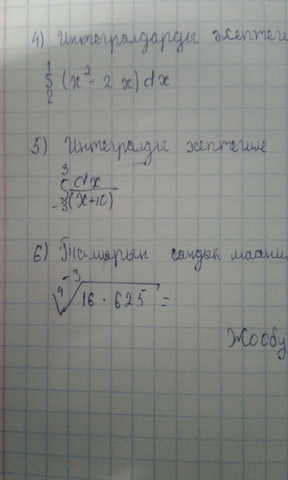 4) Интегралдарды эсептеги
1
∫ (x² - 2x) dx
2
5) Интегралды эсептегиле
3
∫ dx
-3 (x+10)
6) Тамырын сандык маани
-3
⁴√16 · 625 =
Жообу